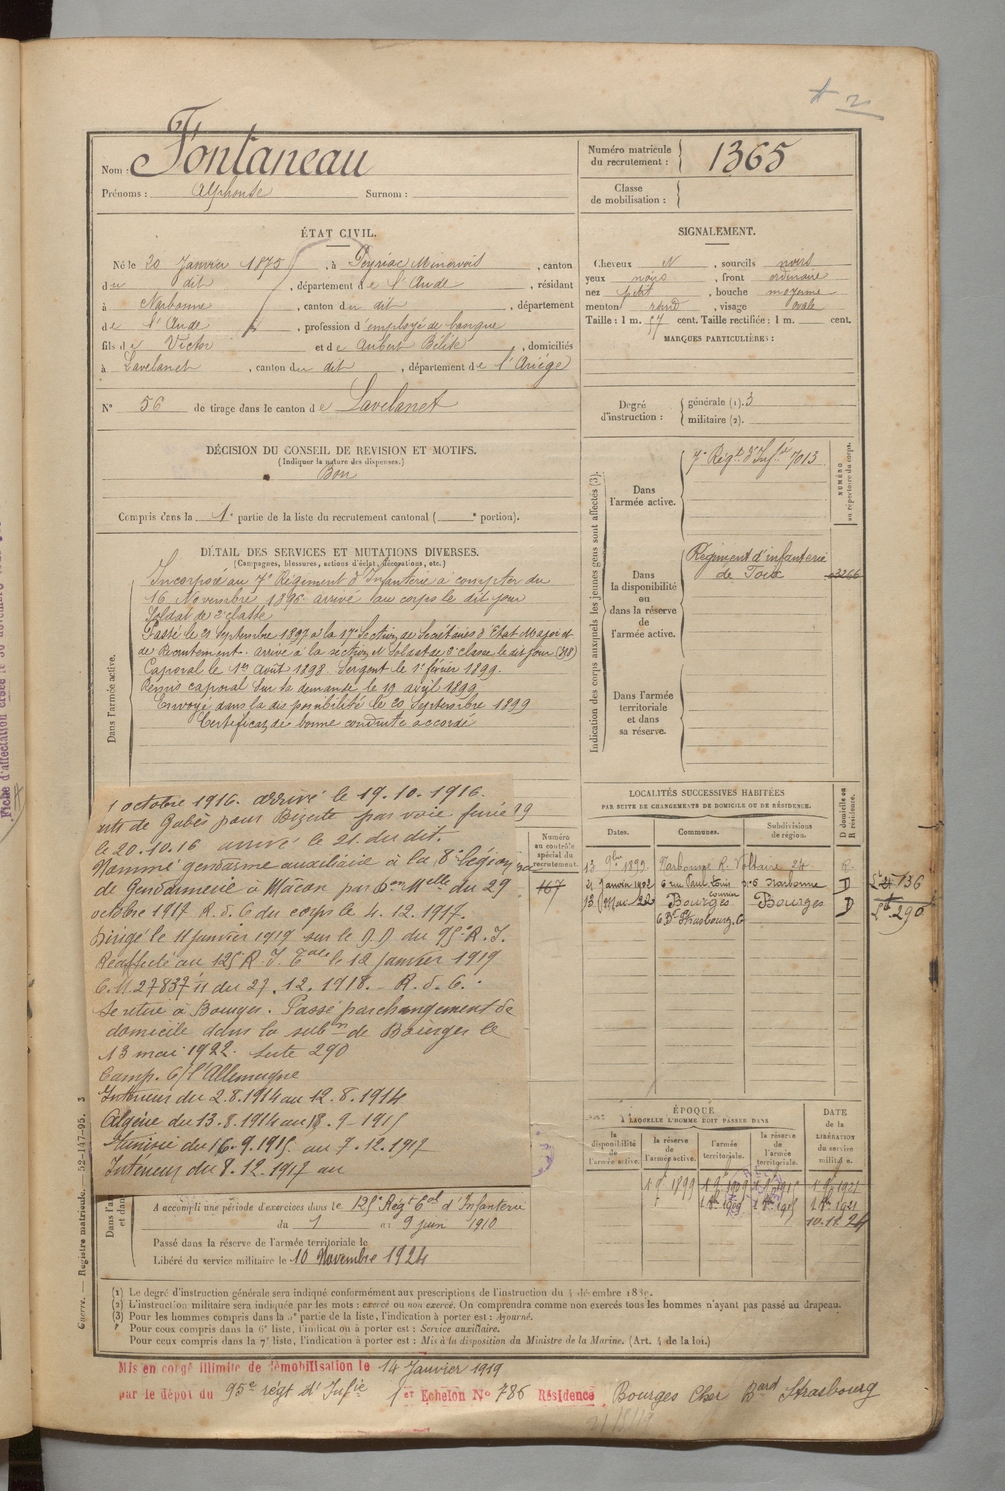 2
Nom : Fontaneau
Prénoms : Alphonse Surnom :
Numéro matricule du recrutement : 1365
Classe de mobilisation :
ÉTAT CIVIL.
Né le 20 Janvier 1875, à Peyriac Minervois, canton
du dit, département de l'Aude, résidant
à Narbonne, canton du dit, département
de l'Aude, profession d'employé de banque
fils de Victor et de Aubert Bélite, domiciliés
à Lavelanet, canton du dit, département de l'Ariège
N° 56 de tirage dans le canton de Lavelanet
SIGNALEMENT.
Cheveux N, sourcils noirs
yeux noirs, front ordinaire
nez petit, bouche moyenne
menton rond, visage ovale
Taille : 1 m. 57 cent. Taille rectifiée : 1 m. cent.
MARQUES PARTICULIÈRES :
Degré d'instruction : générale (1). 3
militaire (2).
DÉCISION DU CONSEIL DE REVISION ET MOTIFS.
(Indiquer la nature des dispenses.)
Bon
Compris dans la 1e partie de la liste du recrutement cantonal ( e portion).
Indication des corps auxquels les jeunes gens sont affectés (3).
Dans l'armée active.
7e Régt d'Infie 7013
NUMÉRO au répertoire du corps.
Dans la disponibilité ou dans la réserve de l'armée active.
Régiment d'infanterie
de Foix 3266
Dans l'armée territoriale et dans sa réserve.
DÉTAIL DES SERVICES ET MUTATIONS DIVERSES.
(Campagnes, blessures, actions d'éclat, décorations, etc.)
Dans l'armée active.
Incorporé au 7e Régiment d'Infanterie à compter du
16 Novembre 1896 arrivé au corps le dit jour
Soldat de 2e classe
Passé le 21 Septembre 1897 à la 17e Section de Secrétaires d'Etat Major et
de Recrutement. arrivé à la section et Soldat de 2e classe le dit jour (318)
Caporal le 1er Août 1898. Sergent le 1er février 1899.
Remis caporal sur sa demande le 19 avril 1899
Envoyé dans la disponibilité le 20 Septembre 1899
Certificat de bonne conduite accordé
octobre 1916. arrivé le 19.10.1916.
de Gabès pour Bizerte par voie ferrée
le 20.10.16 arrivé le 21. du dit.
Nommé gendarme auxiliaire à la 8e légion
de Gendarmerie à Mâcon par Don Melle du 29
octobre 1917 R. d. C du corps le 4.12.1917.
Dirigé le 11 janvier 1919 sur le D.D du 95e R.I.
Réaffecté au 125 R. I. Tale le 12 Janvier 1919
C.M. 27837 du 27.12.1918. R. d. C.
Se retire à Bourges. Passé par changement de
domicile dans la subon de Bourges le
13 mai 1922. Liste 290
Camp. C/ l'Allemagne
Intérieur du 2.8.1914 au 12.8.1914
Algérie du 13.8.1914 au 18.9.1915
Tunisie du 16.9.1915 au 7.12.1917
Intérieur du 8.12.1917 au
Numéro au contrôle spécial du recrutement.
167
LOCALITÉS SUCCESSIVES HABITÉES
PAR SUITE DE CHANGEMENTS DE DOMICILE OU DE RÉSIDENCE.
Dates. Communes. Subdivisions de région. D domicile ou R résidence.
13 9bre 1899 Narbonne R. Voltaire 24 R
21 Janvier 1902 6 rue Paul Louis Courrier Narbonne D 136
13 Mai 22 Bourges Bourges D 290
6 Bd Strasbourg
ÉPOQUE
À LAQUELLE L'HOMME DOIT PASSER DANS
la disponibilité de l'armée active. la réserve de l'armée active. l'armée territoriale. la réserve de l'armée territoriale.
DATE DE LA LIBÉRATION du service militaire.
1 9e 1899 1 9e 1909 1 9e 1915 1 9e 1921
10.11.24
A accompli une période d'exercices dans le 125e Régt Tal d'Infanterie
du 1 au 9 juin 1910
Passé dans la réserve de l'armée territoriale le
Libéré du service militaire le 10 Novembre 1924
(1) Le degré d'instruction générale sera indiqué conformément aux prescriptions de l'instruction du 4 décembre 1889.
(2) L'instruction militaire sera indiquée par les mots : exercé ou non exercé. On comprendra comme non exercés tous les hommes n'ayant pas passé au drapeau.
(3) Pour les hommes compris dans la 5e partie de la liste, l'indication à porter est : Ajourné.
Pour ceux compris dans la 6e liste, l'indication à porter est : Service auxiliaire.
Pour ceux compris dans la 7e liste, l'indication à porter est : Mis à la disposition du Ministre de la Marine. (Art. 4 de la loi.)
Guerre. — Registre matricule. — 52-147-95. 3
Mis en congé illimité de démobilisation le 14 Janvier 1919
par le dépôt du 95e régt d'Infie 1er Echelon N° 786 Résidence Bourges Cher Bard Strasbourg